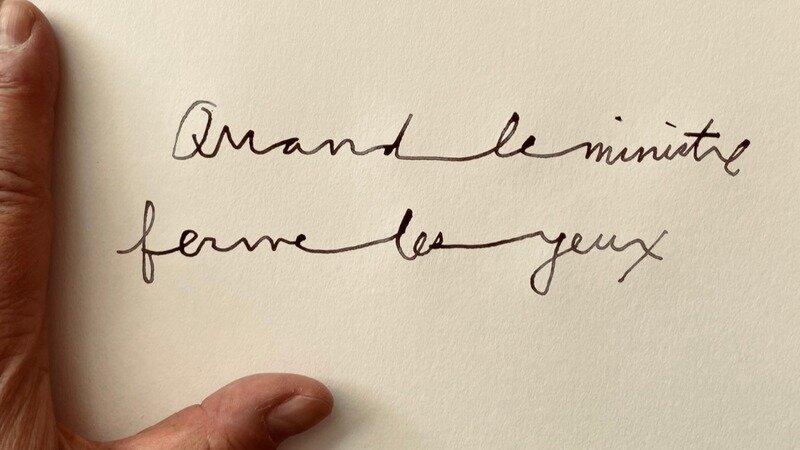 Quand le ministre
ferme les yeux